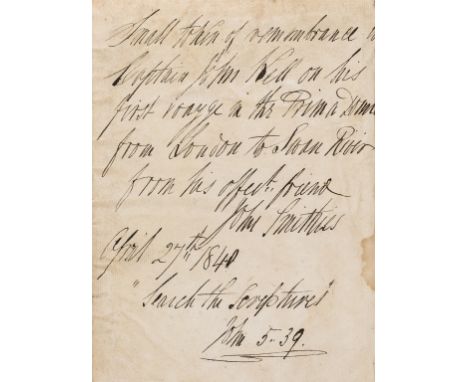 Small token of remembrance to
Captain John Kell on his
first voyage in the Prima Donna
from London to Swan River
from his affect. friend
John Smithies
April 27th 1840
"Search the Scriptures"
John 5-39.